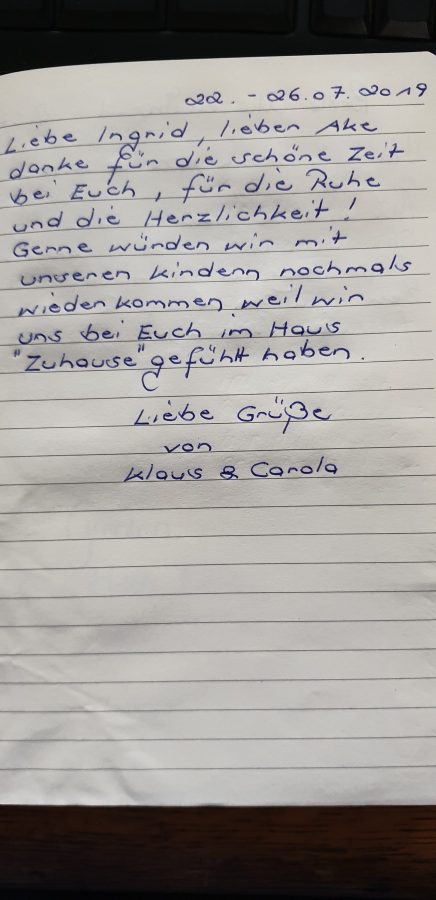 22. - 26.07.2019
Liebe Ingrid, lieber Ake
danke für die schöne Zeit
bei Euch, für die Ruhe
und die Herzlichkeit!
Gerne würden wir mit
unseren kindern nochmals
wieder kommen weil wir
uns bei Euch im Haus
"Zuhause" gefühlt haben.
Liebe Grüße
von
Klaus & Carola